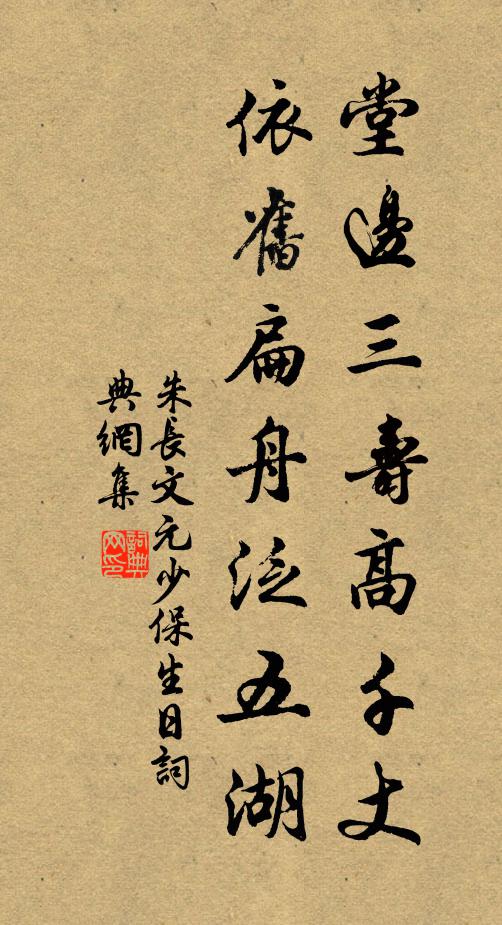 堂邊三壽高千丈
依舊扁舟泛五湖
朱長文元少保生日詞
典網集
詞典網印